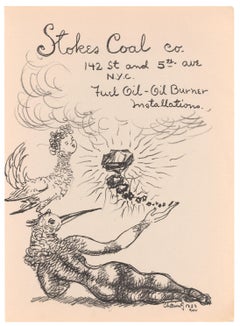 Stokes Coal co.
142 St and 5th. ave
N.Y.C.
Fuel Oil-Oil Burner
Installations.